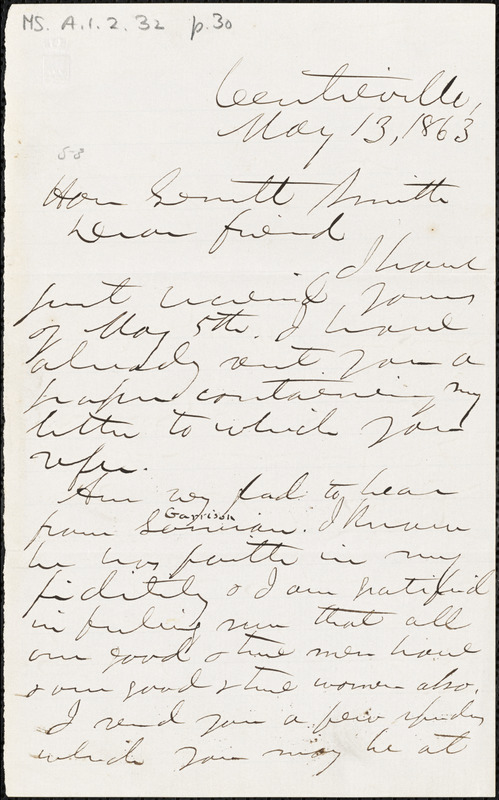 MS. A.1.2.32 p.30
Centreville,
May 13, 1863
58
Hon Gerritt Smith
Dear friend
I have
just received yours
of May 5th. I have
already sent you a
paper containing my
letter to which you
refer.
Am very glad to hear
Garrison
from Garrison. I know
he has faith in my
fidelity & I am gratified
in feeling sure that all
our good & true men have
& our good & true women also.
I send you a few speeches
which you may be at